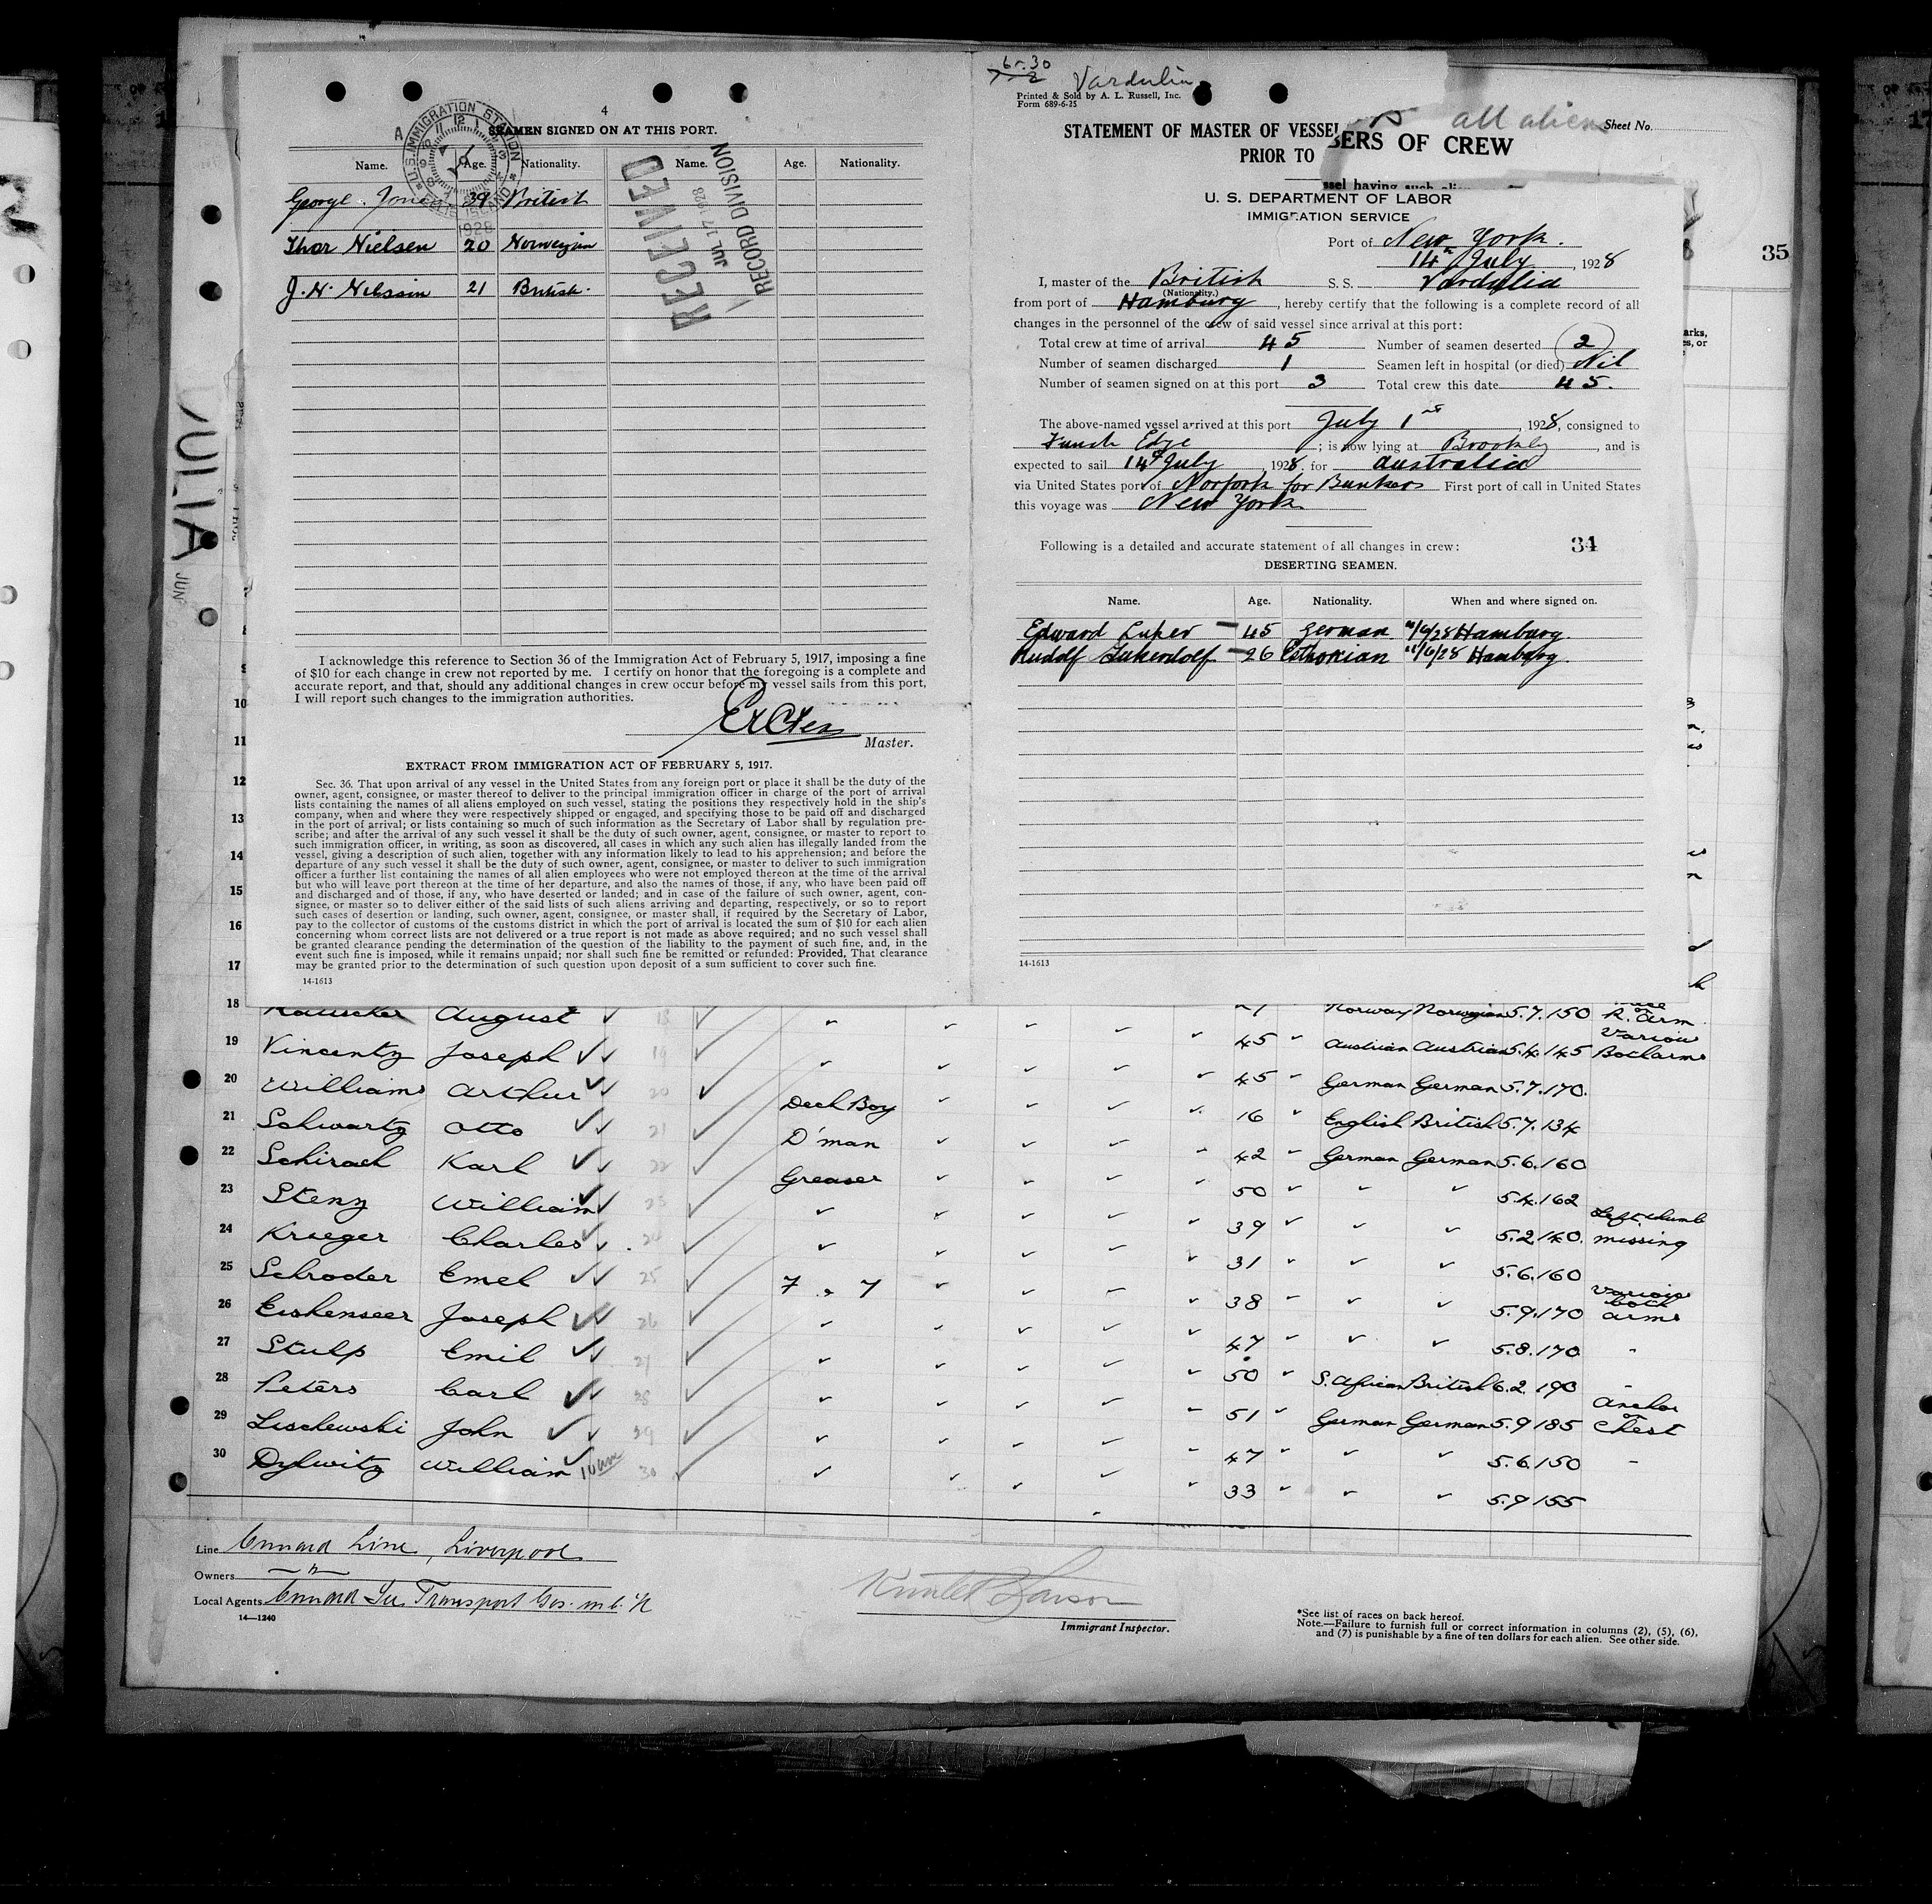 4
SEAMEN SIGNED ON AT THIS PORT.
Name. Age. Nationality. Name. Age. Nationality.
George. 39 British
Thor Nielsen 20 Norwegian
J. N. 21 British.
U.S. IMMIGRATION STATION
1928
RECEIVED
JUL 17 1928
RECORD DIVISION
I acknowledge this reference to Section 36 of the Immigration Act of February 5, 1917, imposing a fine
of $10 for each change in crew not reported by me. I certify on honor that the foregoing is a complete and
accurate report, and that, should any additional changes in crew occur before my vessel sails from this port,
I will report such changes to the immigration authorities.
Master.
EXTRACT FROM IMMIGRATION ACT OF FEBRUARY 5, 1917.
Sec. 36. That upon arrival of any vessel in the United States from any foreign port or place it shall be the duty of the
owner, agent, consignee, or master thereof to deliver to the principal immigration officer in charge of the port of arrival
lists containing the names of all aliens employed on such vessel, stating the positions they respectively hold in the ship's
company, when and where they were respectively shipped or engaged, and specifying those to be paid off and discharged
in the port of arrival; or lists containing so much of such information as the Secretary of Labor shall by regulation pre-
scribe; and after the arrival of any such vessel it shall be the duty of such owner, agent, consignee, or master to report to
such immigration officer, in writing, as soon as discovered, all cases in which any such alien has illegally landed from the
vessel, giving a description of such alien, together with any information likely to lead to his apprehension; and before the
departure of any such vessel it shall be the duty of such owner, agent, consignee, or master to deliver to such immigration
officer a further list containing the names of all alien employees who were not employed thereon at the time of the arrival
but who will leave port thereon at the time of her departure, and also the names of those, if any, who have been paid off
and discharged and of those, if any, who have deserted or landed; and in case of the failure of such owner, agent, con-
signee, or master so to deliver either of the said lists of such aliens arriving and departing, respectively, or so to report
such cases of desertion or landing, such owner, agent, consignee, or master shall, if required by the Secretary of Labor,
pay to the collector of customs of the customs district in which the port of arrival is located the sum of $10 for each alien
concerning whom correct lists are not delivered or a true report is not made as above required; and no such vessel shall
be granted clearance pending the determination of the question of the liability to the payment of such fine, and, in the
event such fine is imposed, while it remains unpaid; nor shall such fine be remitted or refunded: Provided, That clearance
may be granted prior to the determination of such question upon deposit of a sum sufficient to cover such fine.
14-1613
Vardulia
Printed & Sold by A. L. Russell, Inc.
Form 689-6-25
all aliens Sheet No.
STATEMENT OF MASTER OF VESSEL
PRIOR TO BERS OF CREW
U. S. DEPARTMENT OF LABOR
IMMIGRATION SERVICE
Port of New York.
14th July, 1928
I, master of the British S. S. Vardulia
(Nationality.)
from port of Hamburg, hereby certify that the following is a complete record of all
changes in the personnel of the crew of said vessel since arrival at this port:
Total crew at time of arrival 45 Number of seamen deserted 2
Number of seamen discharged 1 Seamen left in hospital (or died) Nil
Number of seamen signed on at this port 3 Total crew this date 45.
The above-named vessel arrived at this port July 1st, 1928, consigned to
Funch Edye; is now lying at Brookly, and is
expected to sail 14th July, 1928, for Australia
via United States port of Norfork for Bunkers First port of call in United States
this voyage was New York
Following is a detailed and accurate statement of all changes in crew: 34
DESERTING SEAMEN.
Name. Age. Nationality. When and where signed on.
Edward Luker 45 German 11/6/28 Hamburg.
Rudolf 26 11/6/28 Hamburg.
14-1613
35
10
11
12
13
14
15
16
17
18 August Norway Norwegian 5.7.150 R. Arm
19 Vincentz Joseph 45 Austrian Austrian 5.4.145 Both arms
20 Williams Arthur Deck Boy 45 German German 5.7.170.
21 Schwartz Otto D'man 16 English British 5.7.134
22 Schirach Karl Greaser 42 German German 5.6.160
23 Stenz William 50 5.4.162
24 Kraeger Charles 39 5.2.140. Left thumb missing
25 Schroder Emel 31 5.6.160
26 Eishenseer Joseph 38 5.9.170 Various both arms
27 Stulp Emil 47 5.8.170
28 Peters Carl 50 S. African British 6.2.190
29 Lischewski John 51 German German 5.9 185 Anchor on Chest
30 Dylwitz William 47 5.6.150
33 5.9 155
Line Cunard Line, Liverpool
Owners
Local Agents Cunard See Transport Ges. m.b.H
14—1240
Immigrant Inspector.
*See list of races on back hereof.
Note.—Failure to furnish full or correct information in columns (2), (5), (6),
and (7) is punishable by a fine of ten dollars for each alien. See other side.